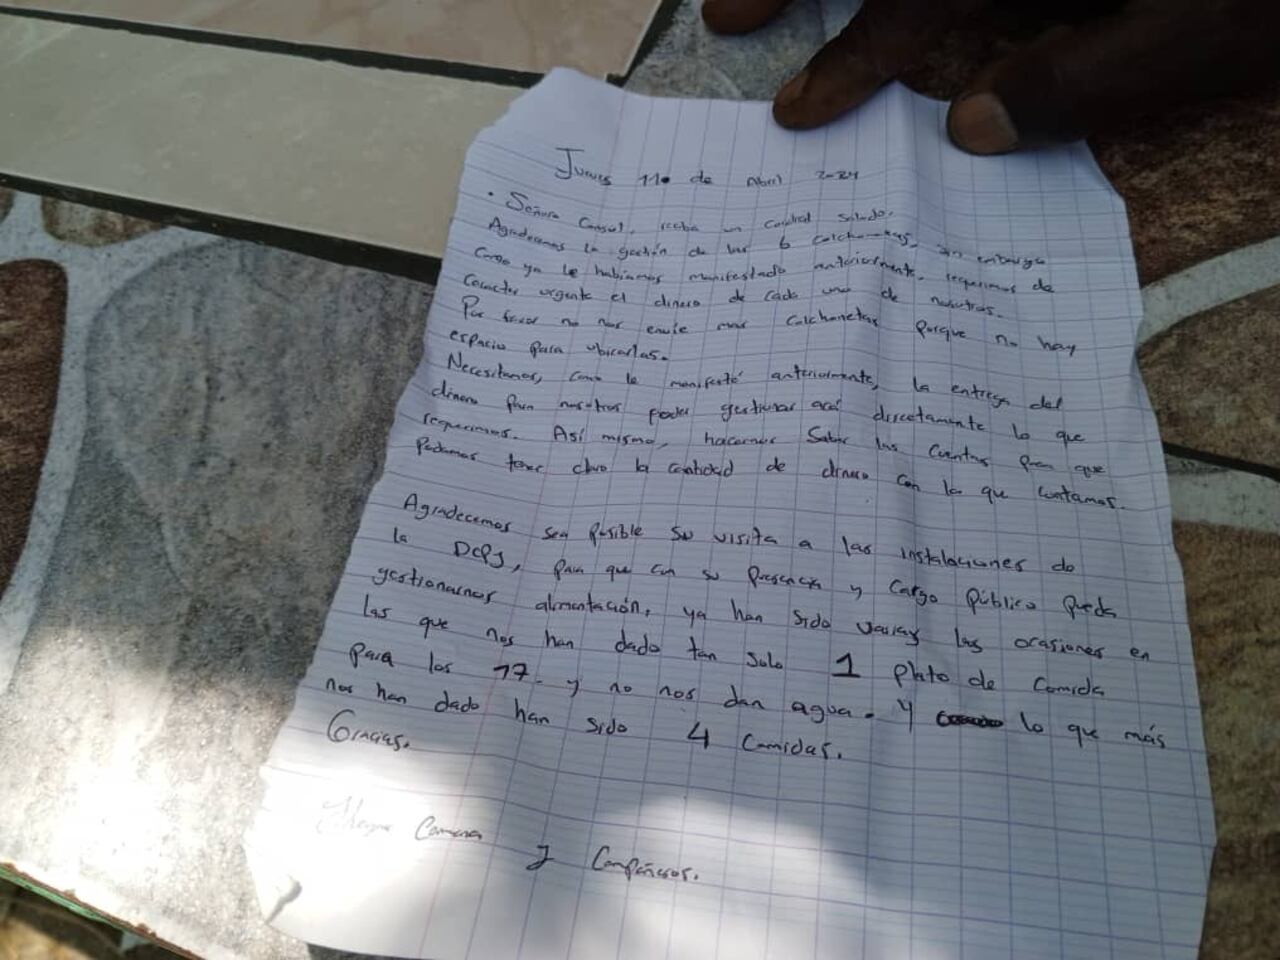 Jueves 11 de Abril 2024
• Señora Consul, reciba un cordial saludo.
Agradecemos la gestión de las 6 colchonetas, sin embargo
Como ya le habíamos manifestado anteriormente, requerimos de
Caracter urgente el dinero de cada uno de nosotros.
Por favor no nos envie mas colchonetas porque no hay
espacio para ubicarlas.
Necesitamos, como le manifesté anteriormente, la entrega del
dinero para nosotros poder gestionar acá directamente lo que
requerimos. Así mismo, hacernos saber las cuentas para que
Podamos tener claro la cantidad de dinero con lo que contamos.
Agradecemos sea posible su visita a las instalaciones de
la DCPJ, para que con su presencia y cargo público pueda
gestionarnos alimentación, ya han sido varias las ocasiones en
las que nos han dado tan solo 1 plato de comida
para los 17. y no nos dan agua. Y lo que más
nos han dado han sido 4 comidas.
Gracias.
y Compañeros.